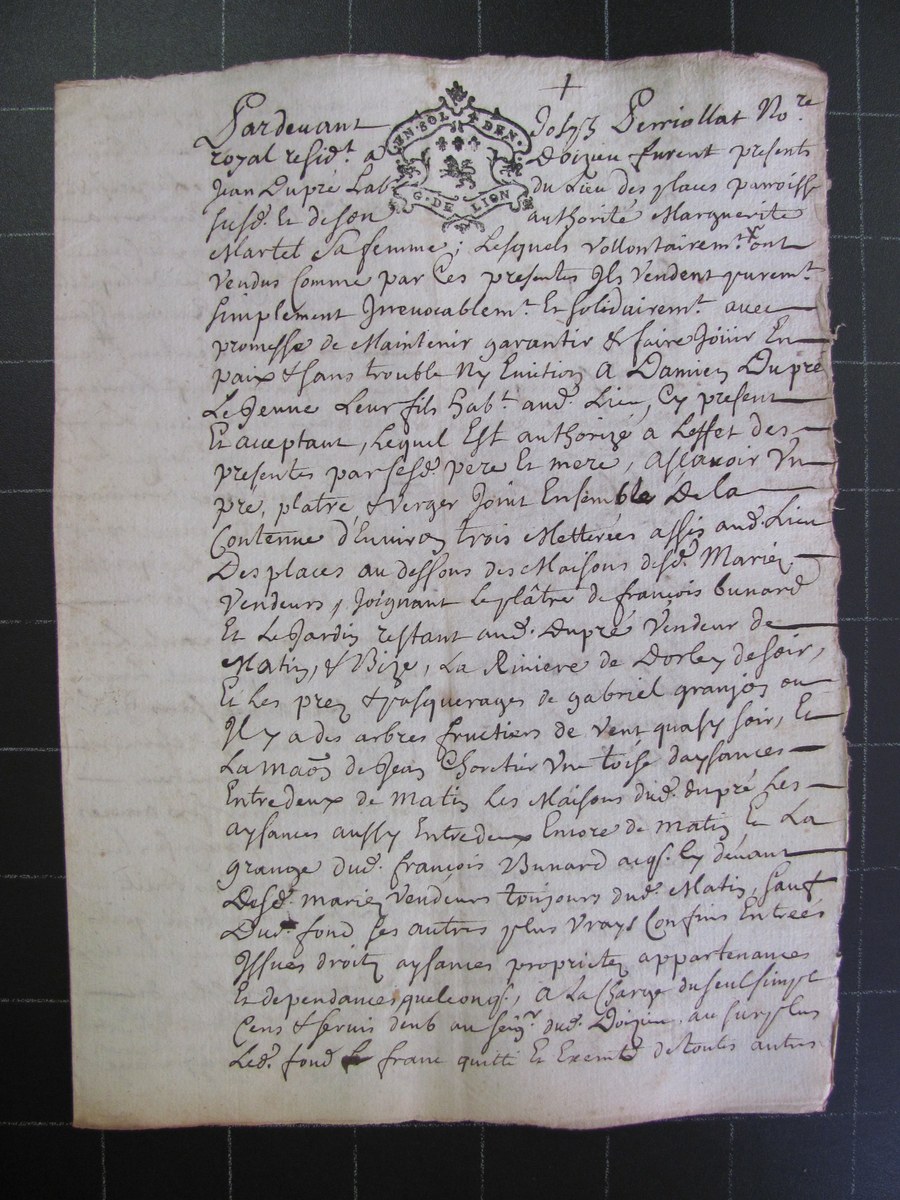 EN·SOL ✝ DEN·
G·DE LION
Pardeuant Joseph Perriollat No.re
royal resid.t a Doizieu furent presents
Jean Dupré Lab.r du Lieu des places parroisse
susd. Et de son authorité Marguerite
Martel Sa femme; Lesquels Vollontairem.t ont
Vendus Comme par Ces presentes Ils Vendent purem.t
simplement Irreuocablem.t Et solidairem.t avec
promesse de Maintenir garantir & faire Joüir En
paix & sans trouble Ny Euiction A Damien Dupré
Le Jeune Leur fils hab.t aud. Lieu, Cy present
Et acceptant, Lequel Est authorizé a L'effet des
presentes par sesd. pere Et mere, Ascauoir Un
pré, platre & Verger Joint Ensemble De la
Contenue d'Enuiron trois Metterées assis aud. Lieu
Des places au dessous des Maisons desd. Mariez
Vendeurs, Joignant le plâtre de françois bunard
Et Le Jardin restant aud. Dupré Vendeur de
Matin, & Bize, La Riuiere de Dorley de soir,
Et Les prez & pasquerages de gabriel granjon ou
Il y a des arbres fructiers de Vent quasy soir, Et
La maõn de Jean Choretier Une toise daysances
Entredeux de matin Les Maisons dud. dupré Les
aysances aussy Entredeux Encore de matin Et La
grange dud. françois Bunard acqs. cy deuant
Desd. mariez Vendeurs toujours dud. Matin, sauf
Dud. fond ses autres plus Vrays Confins Entrées
Issues droitz aysances proprietez appartenances
Et dependances quelconqs., A La Charge du seul simple
Cens & seruis deub au seig.r dud. Doizieu, au surplus
Led. fond franc quitti Et Exempt de toutes autres